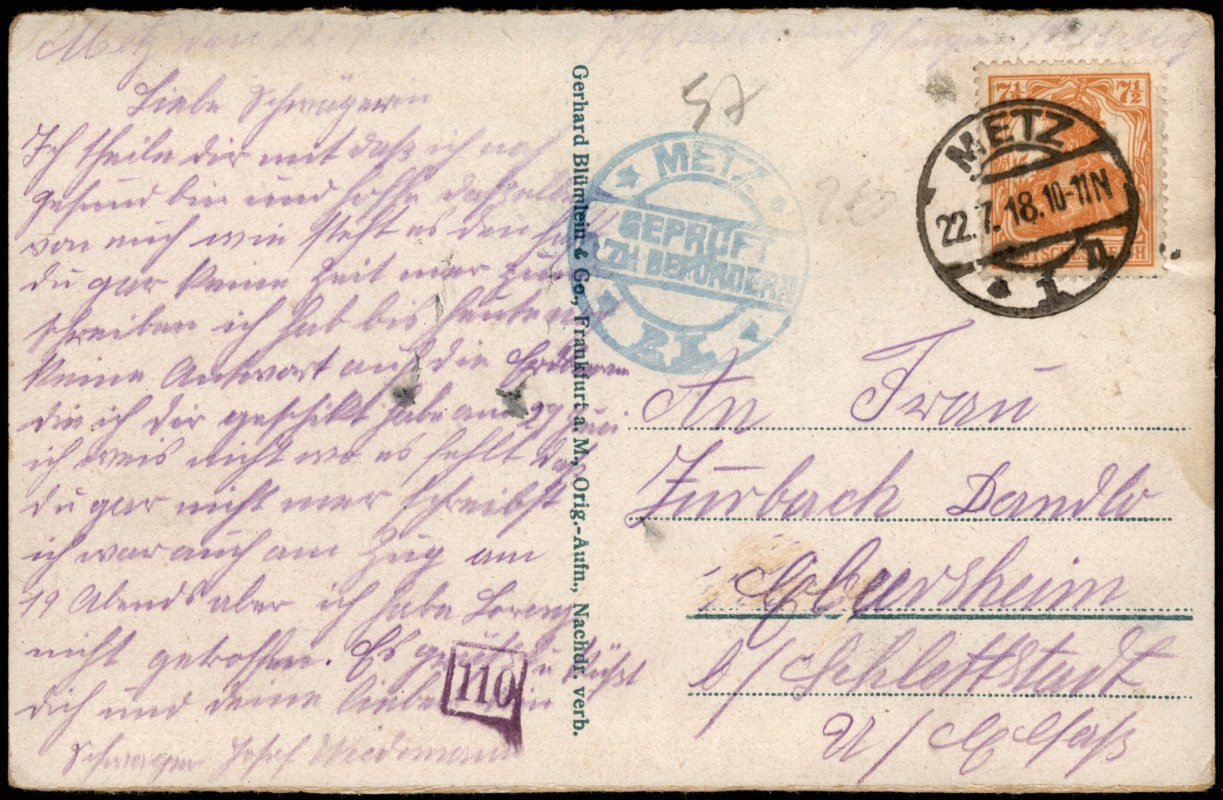 Metz den 22
Liebe Schwägerin
Ich theile dir mit daß ich noch
gesund bin und hoffe dasselbe
von euch wie steht es den hast
du gar keine Zeit mer zum
schreiben ich hab bis heute noch
keine Antwort auf die
die ich dir geschikt habe am 27 Juni
ich weis nicht wo es fehlt das
du gar nicht mer schreibst
ich war auch am Zug am
19 Abends aber ich habe Lorenz
nicht getroffen. Es grüßt
dich und deine lieben
Schwager Josef Wiedemann
110
Gerhard Blümlein & Co., Frankfurt a. M., Orig.-Aufn., Nachdr. verb.
57
METZ
GEPRÜFT
ZU BEFÖRDERN
7½ 7½
METZ
22.7.18.10-11N
1 n
An Frau
Zurbach Dandlo
Ebersheim
b/ Schlettstadt
U/ Elsaß